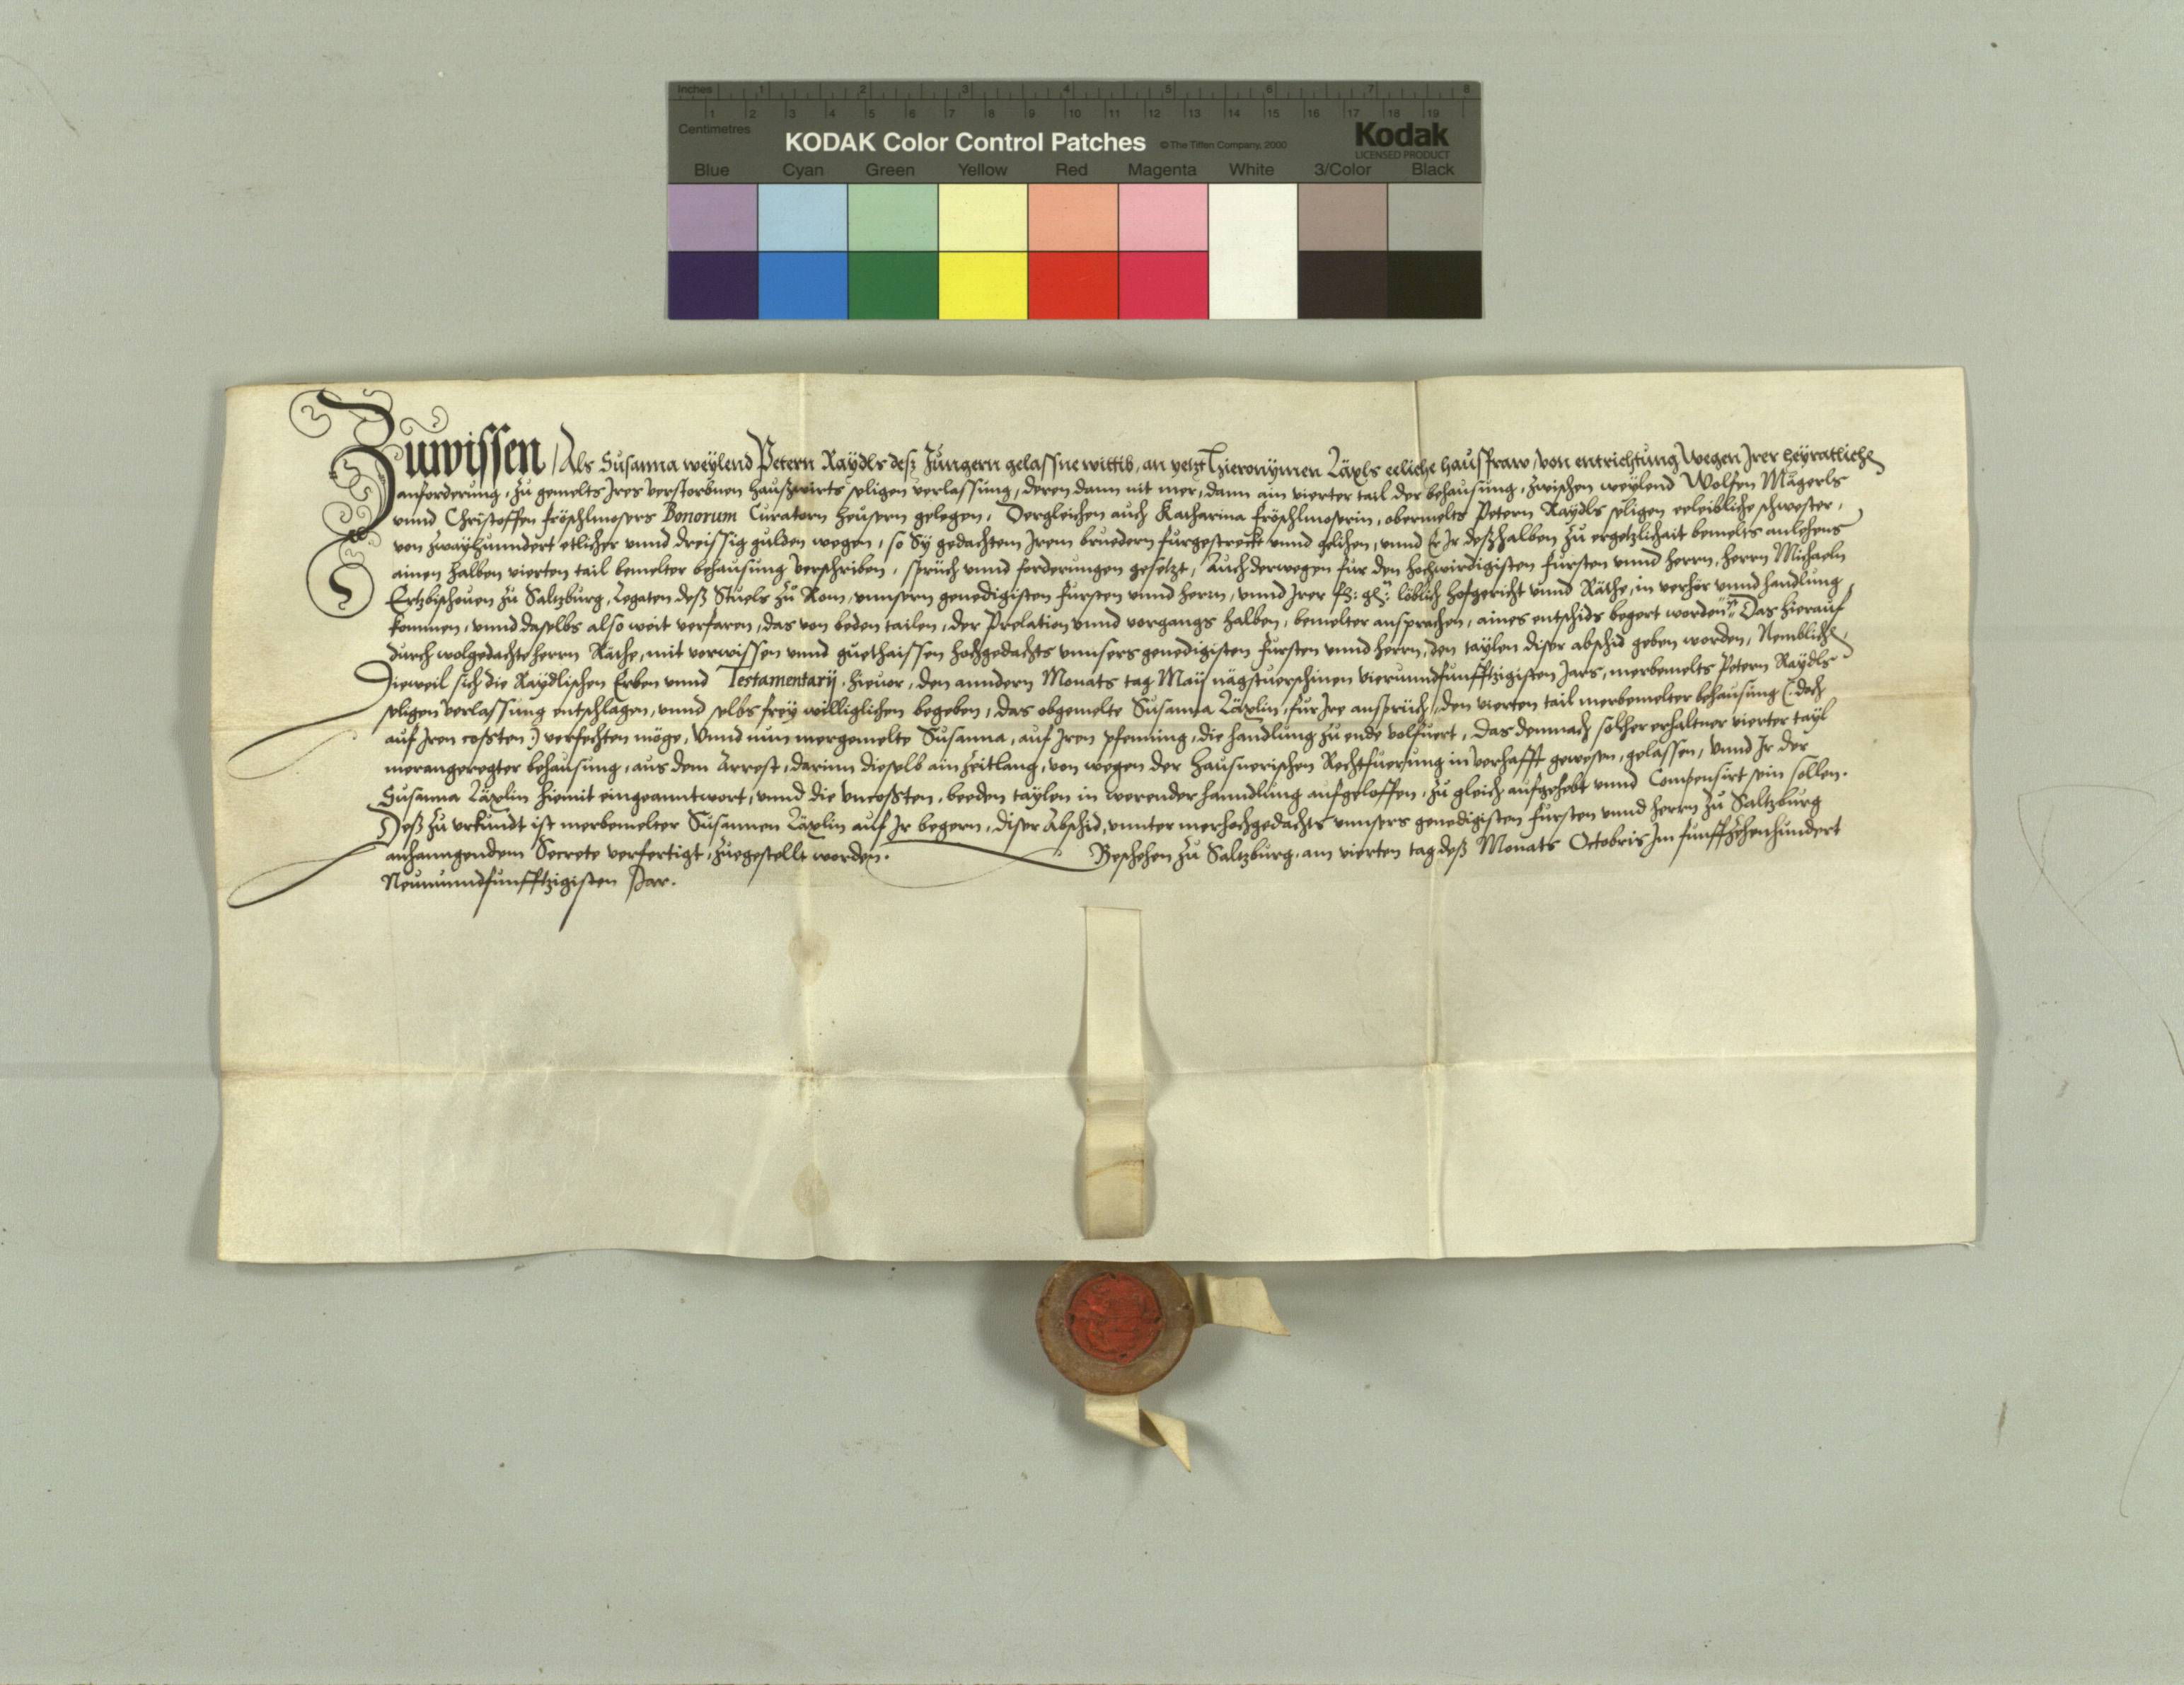 Inches 1 2 3 4 5 6 7 8
1 2 3 4 5 6 7 8 9 10 11 12 13 14 15 16 17 18 19
Centimetres
KODAK Color Control Patches © The Tiffen Company, 2000 Kodak
LICENSED PRODUCT
Blue Cyan Green Yellow Red Magenta White 3/Color Black
Zuwissen, Als Susanna weylend Petern Raydls desz Jungern gelassne wittib, an yetzt Hieronymen Läxls eeliche hausfraw, von entrichtung wegen Irer heyratliche
anforderung, zu gemelts Ires verstorbnen hauszwirts seligen verlassung, deren dann nit mer, dann ain vierter tail der behausung, zwischen weylend Wolfen Mägerls
vnnd Christoffen fröschlmosers Bonorum Curatorn heusern gelegen, Dergleichen auch Katharina fröschlmoserin, obermelts Petern Raydls seligen eeleibliche schwester,
von zwayhunndert etlicher vnnd dreissig gulden wegen, so Sy gedachtem Irem bruedern furgestreckt vnnd gelihen, vnnd Er Ir deszhalben zu ergetzlichait bemelts anlehens
ainen halben vierten tail bemelter behausung verschriben, sprüch vnnd forderungen gesetzt, Auch derwegen fur den hochwirdigisten fursten vnnd herrn, herrn Michaeln
Ertzbischouen zu Saltzburg, Legaten desz Stuels zu Rom, vnnserm genedigisten fursten vnnd herrn, vnnd Irer fr: gn: löblich hofgericht vnnd Räthe, in verhör vnnd handlung
komen, vnnd daselbs also weit verfaren, das von beden tailen, der Prelation vnnd vorgangs halben, bemelter ansprachen, aines entschids begert worden, Das hierauf
durch wolgedachte herrn Räthe, mit vorwissen vnnd guethaissen hochgedachts vnnsers genedigisten fursten vnnd herrn, den taylen diser abschid geben worden, Nemblich,
Dieweil sich die Raydlischen Erben vnnd Testamentarij, hieuor, den anndern Monats tag Maij nägstuerschinen vierundfunfftzigisten Jars, merbemelts Petern Raydls
seligen verlassung entschlagen, vnnd selbs frey williglichen begeben, das obgemelte Susanna Läxlin, fur Ire ansprüch, den vierten tail merbemelter behausung (: doch
auf Iren cossten :) verfechten möge, Vnnd nun mergemelte Susanna, auf Iren pfenning, die handlung zu ende volfuert, Das demnach solher erhaltner vierter tayl
merangeregter behausung, aus dem Arrest, darinn dieselb ain zeitlang, von wegen der hausnerischen Rechtfuerung in verhafft gewesen, gelassen, Vnnd Ir der
Susanna Läxlin hiemit eingeanntwort, vnnd die vncossten, beeden taylen in werender hanndlung aufgeloffen, zu gleich aufgehebt vnnd Compensirt sein sollen.
Desz zu vrkundt ist merbemelter Susannen Läxlin auf Ir begern, diser Abschid, vnnter merhochgedachts vnnsers genedigisten fursten vnnd herrn zu Saltzburg
anhanngendem Secrete verfertigt, zuegestellt worden. Beschehen zu Saltzburg, am vierten tag desz Monats Octobris Im funffzehenhundert
Neunundfunfftzigisten Jar.